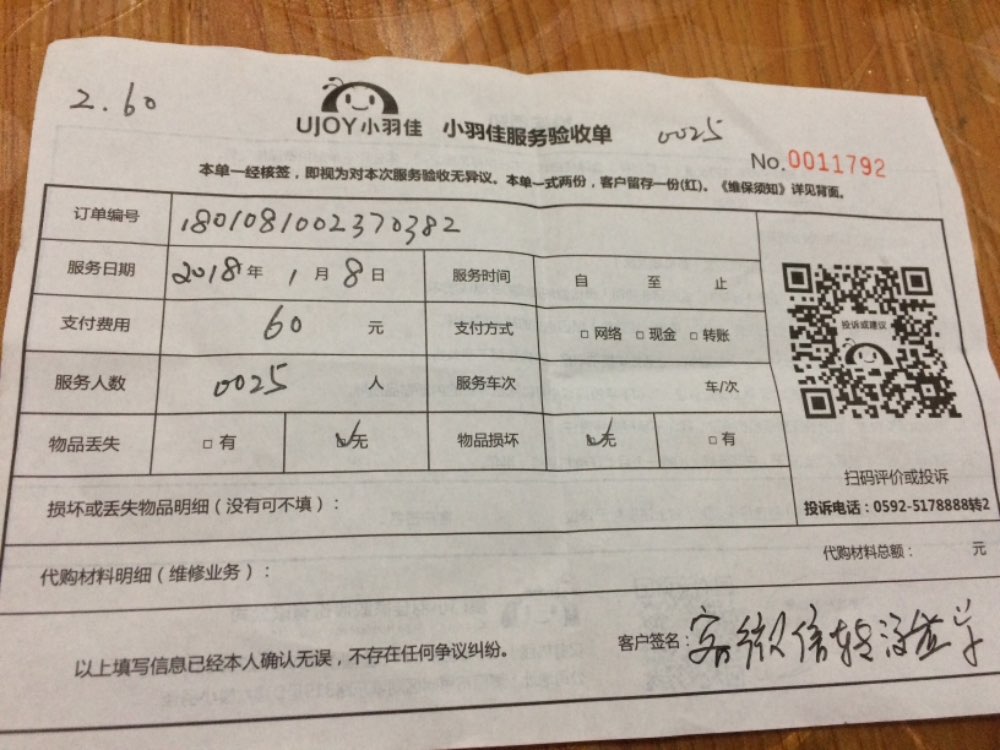 2.60
UJOY小羽佳 小羽佳服务验收单 0025
No.0011792
本单一经核签，即视为对本次服务验收无异议。本单一式两份，客户留存一份(红)。《维保须知》详见背面。
订单编号 1801081002370382
服务日期 2018年 1月8日 服务时间 自 至 止
支付费用 60 元 支付方式 □网络 □现金 □转账
服务人数 0025 人 服务车次 车/次
物品丢失 □有 ☑无 物品损坏 ☑无 □有
投诉或建议
扫码评价或投诉
投诉电话：0592-5178888转2
损坏或丢失物品明细（没有可不填）：
代购材料明细（维修业务）： 代购材料总额： 元
以上填写信息已经本人确认无误，不存在任何争议纠纷。 客户签名：客微信转没签单